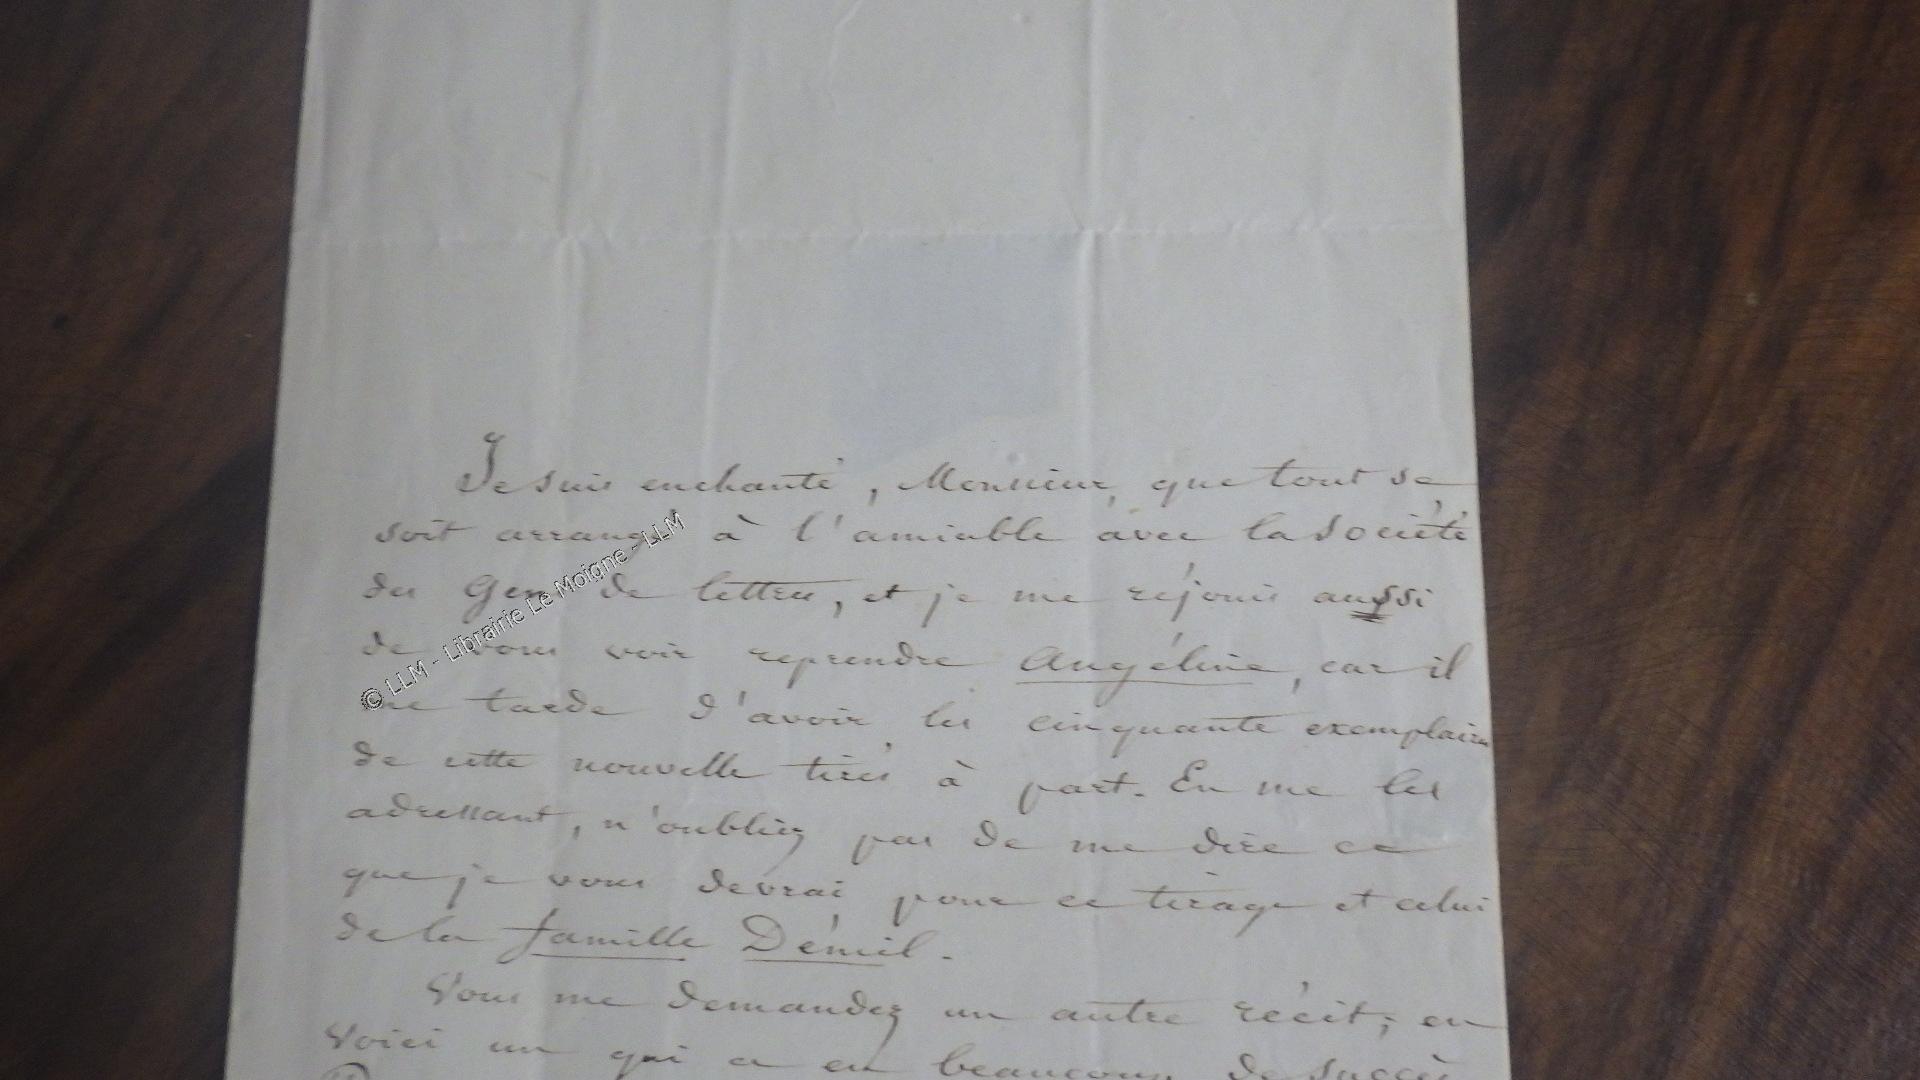 Je suis enchanté, Monsieur, que tout se
soit arrangé à l'amiable avec la Société
des Gens de lettres, et je me réjouis aussi
de vous voir reprendre Angéline, car il
me tarde d'avoir les cinquante exemplaires
de cette nouvelle tirés à part. En me les
adressant, n'oubliez pas de me dire ce
que je vous devrai pour ce tirage et celui
de la famille Déméil.
Vous me demandez un autre récit; en
voici un qui a eu beaucoup de succès
© LLM - Librairie Le Moigne - LLM